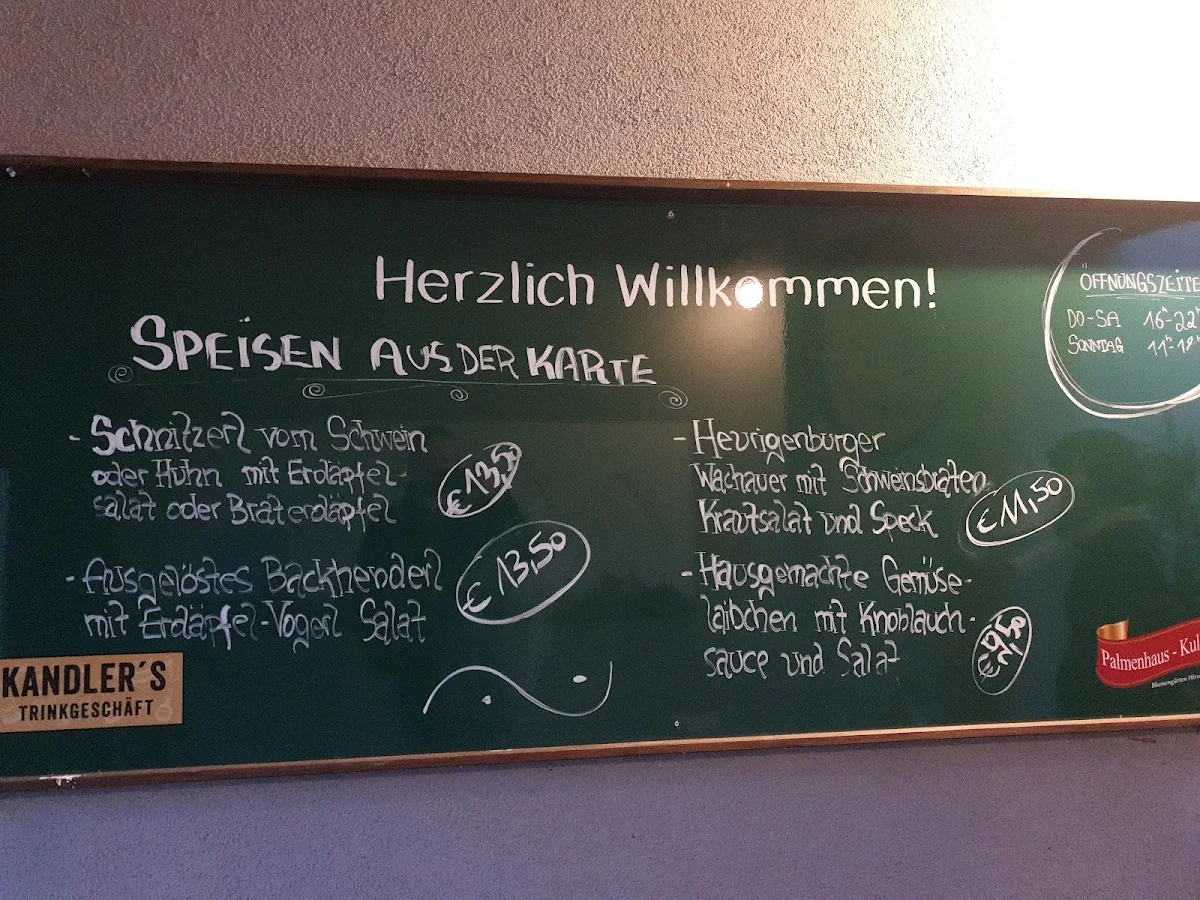 Herzlich Willkommen!
ÖFFNUNGSZEITE
DO-SA 16-22
SONNTAG 11-18
SPEISEN AUS DER KARTE
- Schnitzerl vom Schwein
oder Huhn mit Erdäpfel-
salat oder Braterdäpfel
€ 13,50
- Ausgelöstes Backhenderl
mit Erdäpfel-Vogerl Salat
€ 13,50
- Heurigenburger
Wachauer mit Schweinsbraten
Krautsalat und Speck
€ 11,50
- Hausgemachte Gemüse-
laibchen mit Knoblauch-
sauce und Salat
KANDLER´S
TRINKGESCHÄFT
Palmenhaus - Kul
Blumengärten